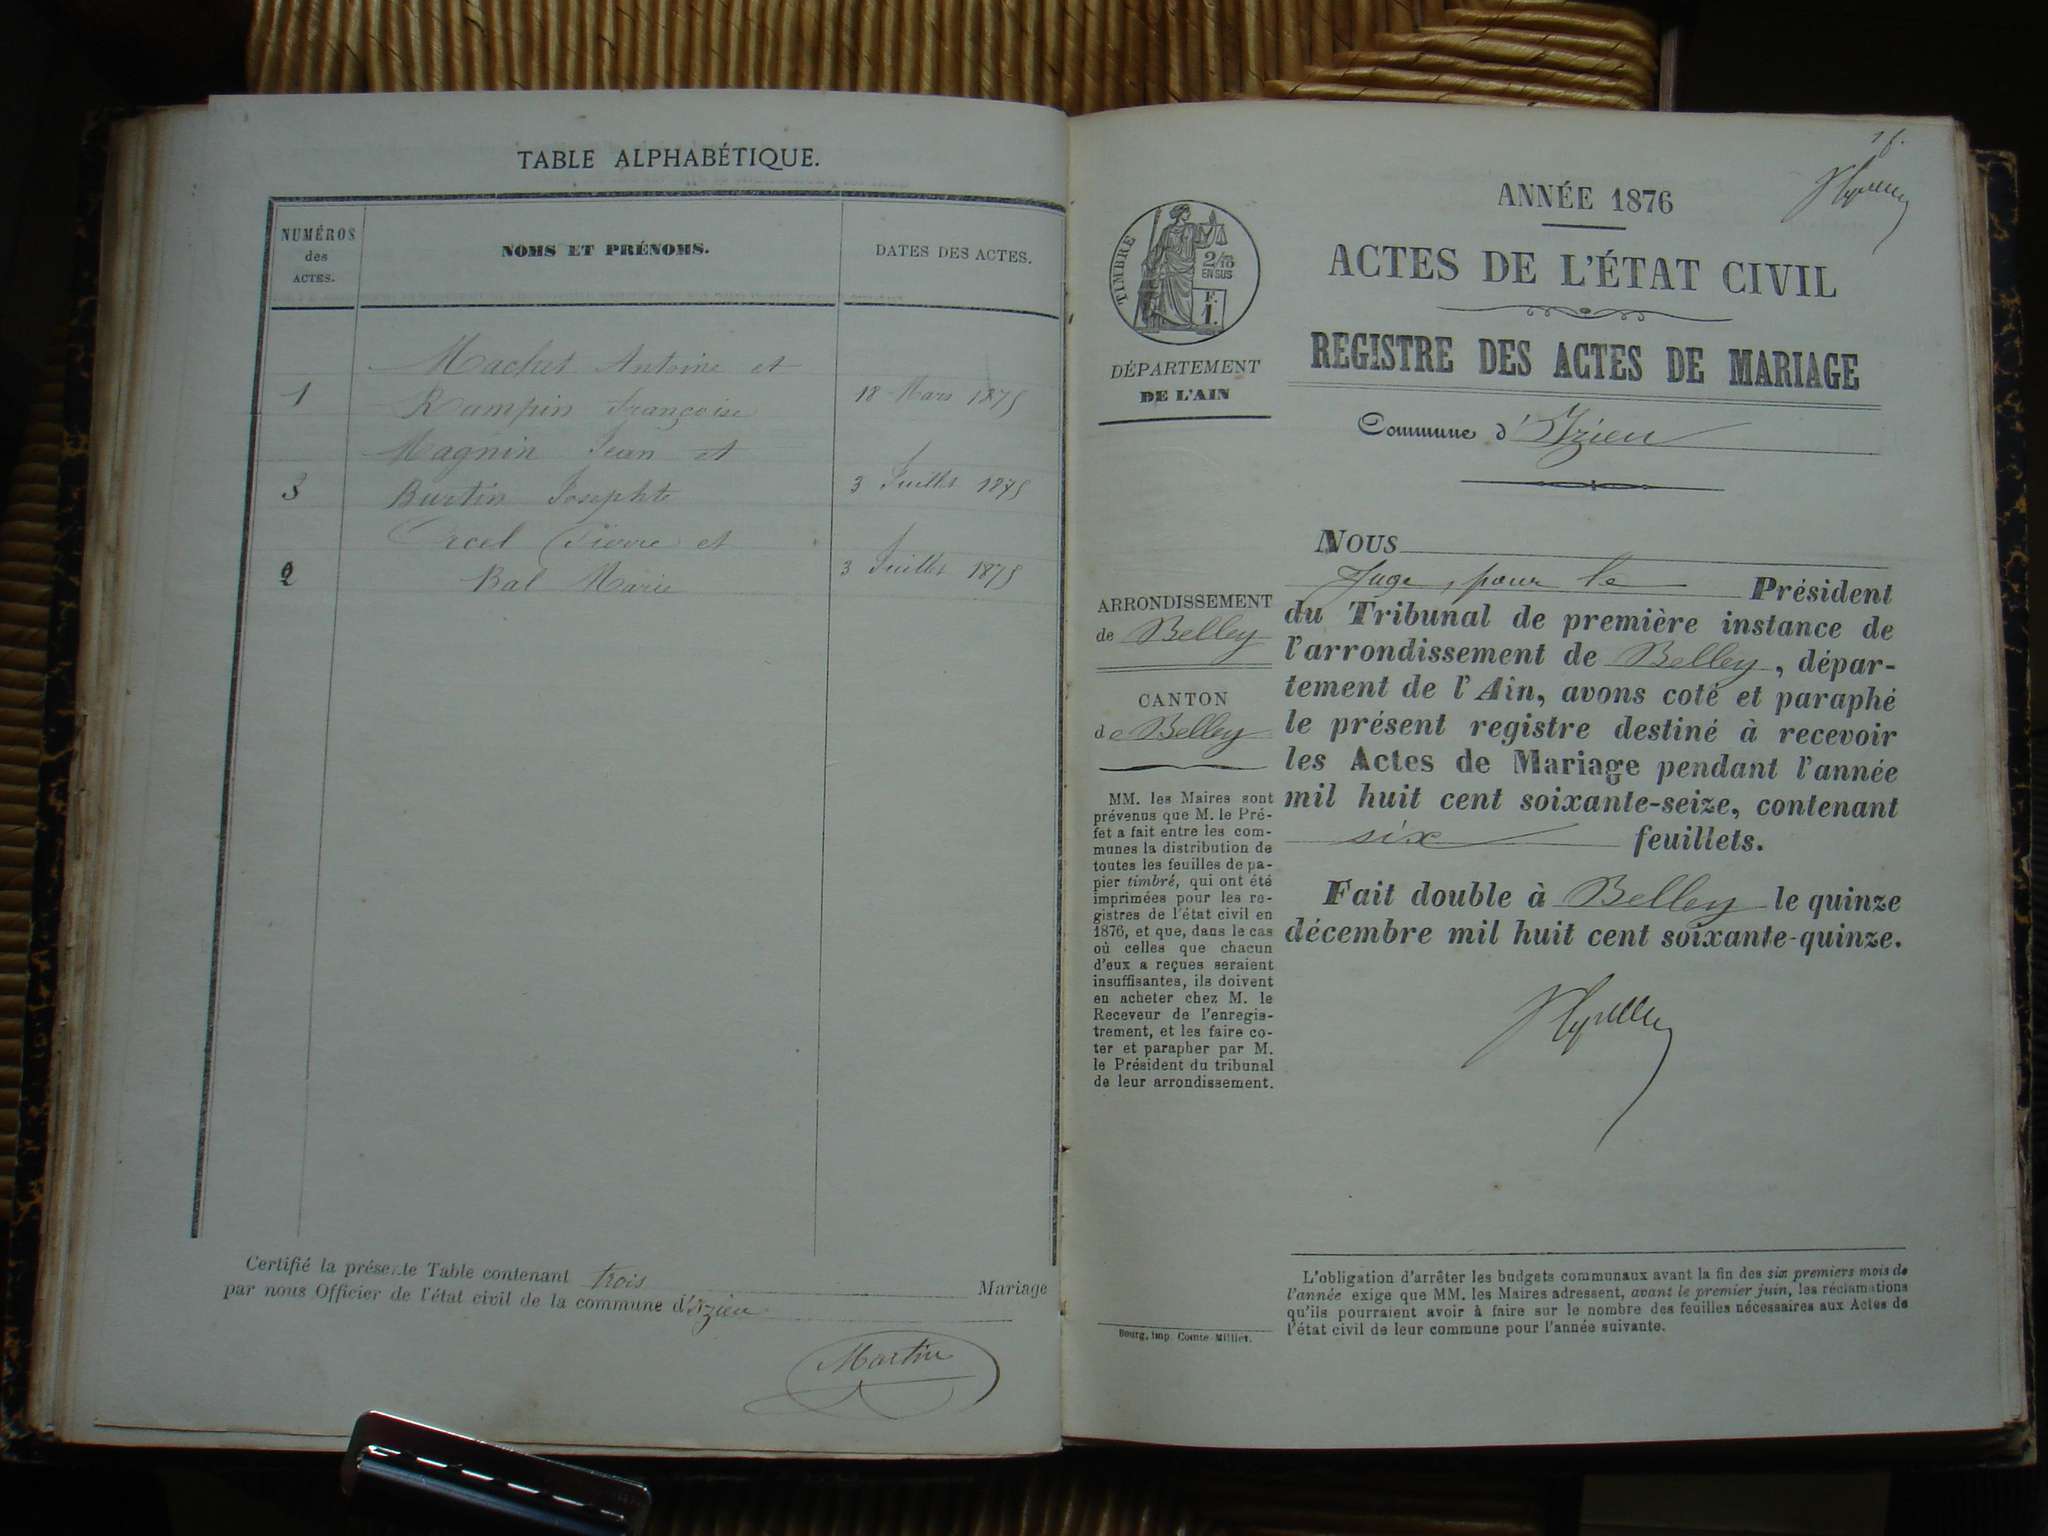 TABLE ALPHABÉTIQUE.
NUMÉROS
des
ACTES.
NOMS ET PRÉNOMS.
DATES DES ACTES.
Machet Antoine et
1 Rampin Françoise 18 Mars 1875
Magnin Jean et
3 Burtin Josephte 3 Juillet 1875
Orcel Pierre et
2 Bal Marie 3 Juillet 1875
Certifié la présente Table contenant trois Mariage
par nous Officier de l'état civil de la commune d'Izieu
Martin
1 f.
ANNÉE 1876
ACTES DE L'ÉTAT CIVIL
REGISTRE DES ACTES DE MARIAGE
Commune d'Izieu
TIMBRE
2/10
EN SUS
F.
1.
DÉPARTEMENT
DE L'AIN
ARRONDISSEMENT
de Belley
CANTON
de Belley
MM. les Maires sont
prévenus que M. le Pré-
fet a fait entre les com-
munes la distribution de
toutes les feuilles de pa-
pier timbré, qui ont été
imprimées pour les re-
gistres de l'état civil en
1876, et que, dans le cas
où celles que chacun
d'eux a reçues seraient
insuffisantes, ils doivent
en acheter chez M. le
Receveur de l'enregis-
trement, et les faire co-
ter et parapher par M.
le Président du tribunal
de leur arrondissement.
Bourg, imp. Comte-Milliet.
NOUS
Juge, pour le Président
du Tribunal de première instance de
l'arrondissement de Belley, dépar-
tement de l'Ain, avons coté et paraphé
le présent registre destiné à recevoir
les Actes de Mariage pendant l'année
mil huit cent soixante-seize, contenant
six feuillets.
Fait double à Belley le quinze
décembre mil huit cent soixante-quinze.
L'obligation d'arrêter les budgets communaux avant la fin des six premiers mois de
l'année exige que MM. les Maires adressent, avant le premier juin, les réclamations
qu'ils pourraient avoir à faire sur le nombre des feuilles nécessaires aux Actes de
l'état civil de leur commune pour l'année suivante.